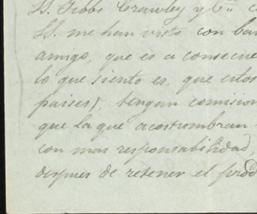 S. Frobs Crawley y Ca.
SS. me han visto con
amigo, que es a consecuen
lo que siento es, que estos
paises), tengan comision
que la que acostumbran
con mas responsabilidad,
despues de retener el